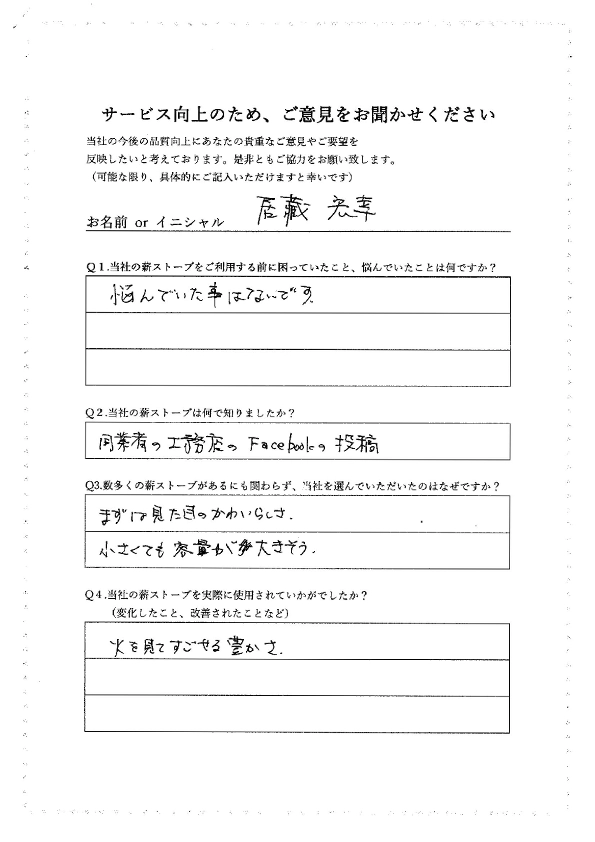 サービス向上のため、ご意見をお聞かせください
当社の今後の品質向上にあなたの貴重なご意見やご要望を
反映したいと考えております。是非ともご協力をお願い致します。
(可能な限り、具体的にご記入いただけますと幸いです)
お名前 or イニシャル 居藏 宏幸
Q1.当社の薪ストーブをご利用する前に困っていたこと、悩んでいたことは何ですか?
悩んでいた事はないです
Q2.当社の薪ストーブは何で知りましたか?
同業者の工務店のFacebookの投稿
Q3.数多くの薪ストーブがあるにも関わらず、当社を選んでいただいたのはなぜですか?
まずは見た目のかわいらしさ.
小さくても容量が大きそう.
Q4.当社の薪ストーブを実際に使用されていかがでしたか?
(変化したこと、改善されたことなど)
火を見てすごせる豊かさ.